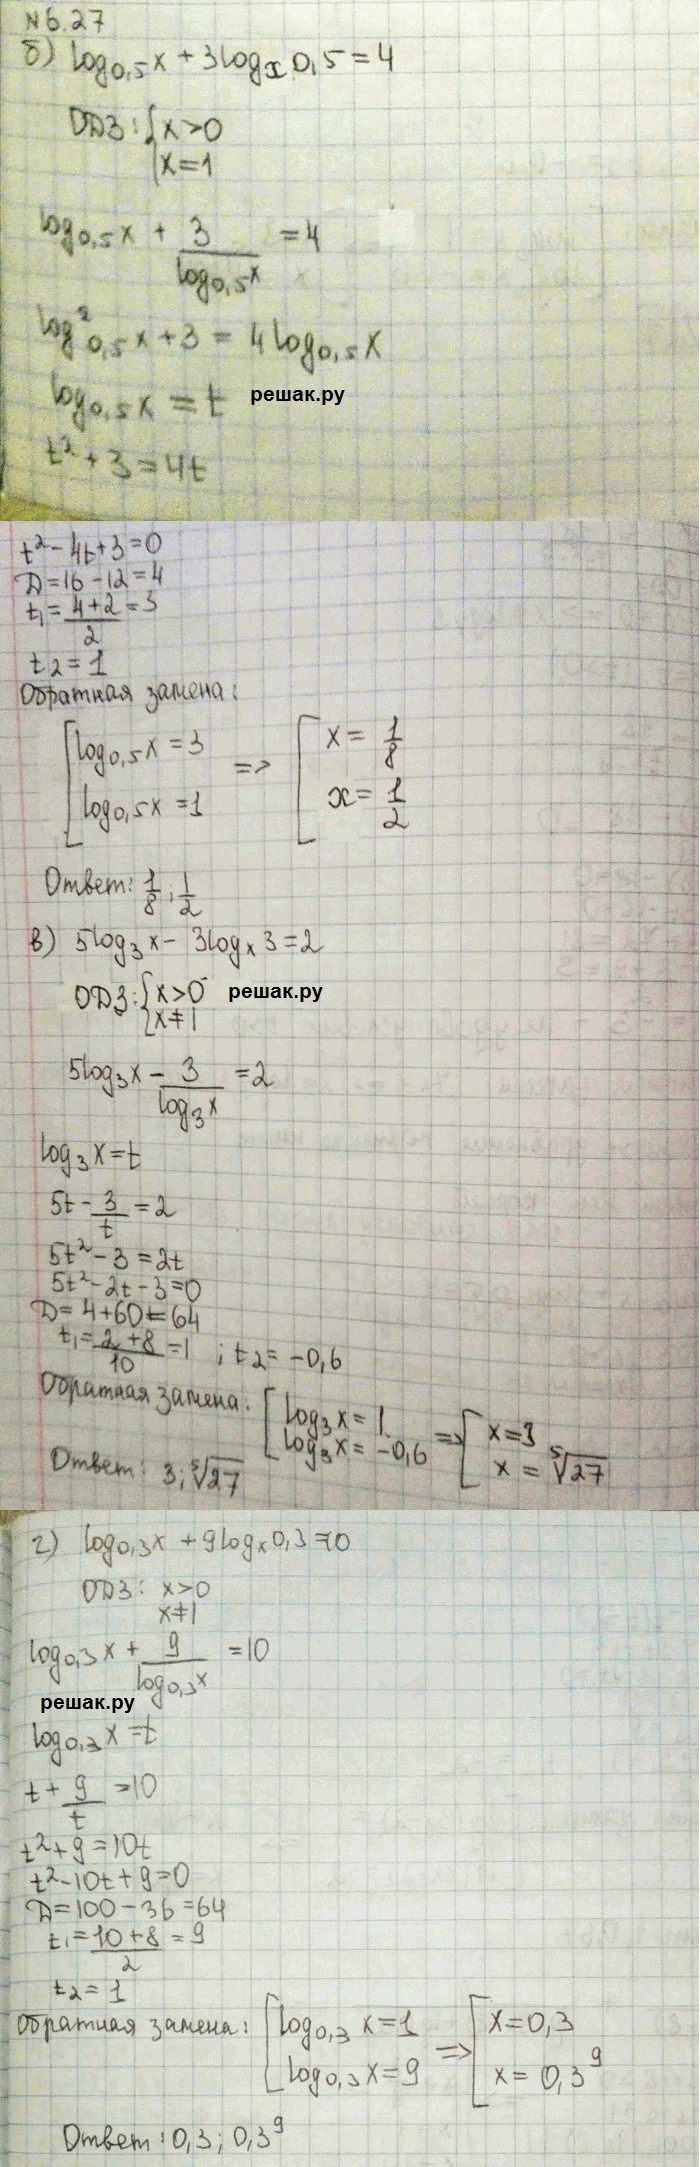 №6.27
б) log₀,₅x + 3logₓ0,5 = 4
ОДЗ: { x>0
x=1
log₀,₅x + 3/log₀,₅x = 4
log²₀,₅x + 3 = 4log₀,₅x
log₀,₅x = t решак.ру
t² + 3 = 4t
t² - 4t + 3 = 0
D = 16 - 12 = 4
t₁ = (4+2)/2 = 3
t₂ = 1
Обратная замена:
[ log₀,₅x = 3 => [ x = 1/8
log₀,₅x = 1 x = 1/2
Ответ: 1/8; 1/2
в) 5log₃x - 3logₓ3 = 2
ОДЗ: { x>0 решак.ру
x≠1
5log₃x - 3/log₃x = 2
log₃x = t
5t - 3/t = 2
5t² - 3 = 2t
5t² - 2t - 3 = 0
D = 4+60 = 64
t₁ = (2+8)/10 = 1 ; t₂ = -0,6
Обратная замена: [ log₃x = 1 => [ x=3
log₃x = -0,6 x = ⁵√27
Ответ: 3; ⁵√27
г) log₀,₃x + 9logₓ0,3 = 10
ОДЗ: x>0
x≠1
log₀,₃x + 9/log₀,₃x = 10
решак.ру
log₀,₃x = t
t + 9/t = 10
t² + 9 = 10t
t² - 10t + 9 = 0
D = 100 - 36 = 64
t₁ = (10+8)/2 = 9
t₂ = 1
Обратная замена: [ log₀,₃x = 1 => [ x = 0,3
log₀,₃x = 9 x = 0,3⁹
Ответ: 0,3; 0,3⁹